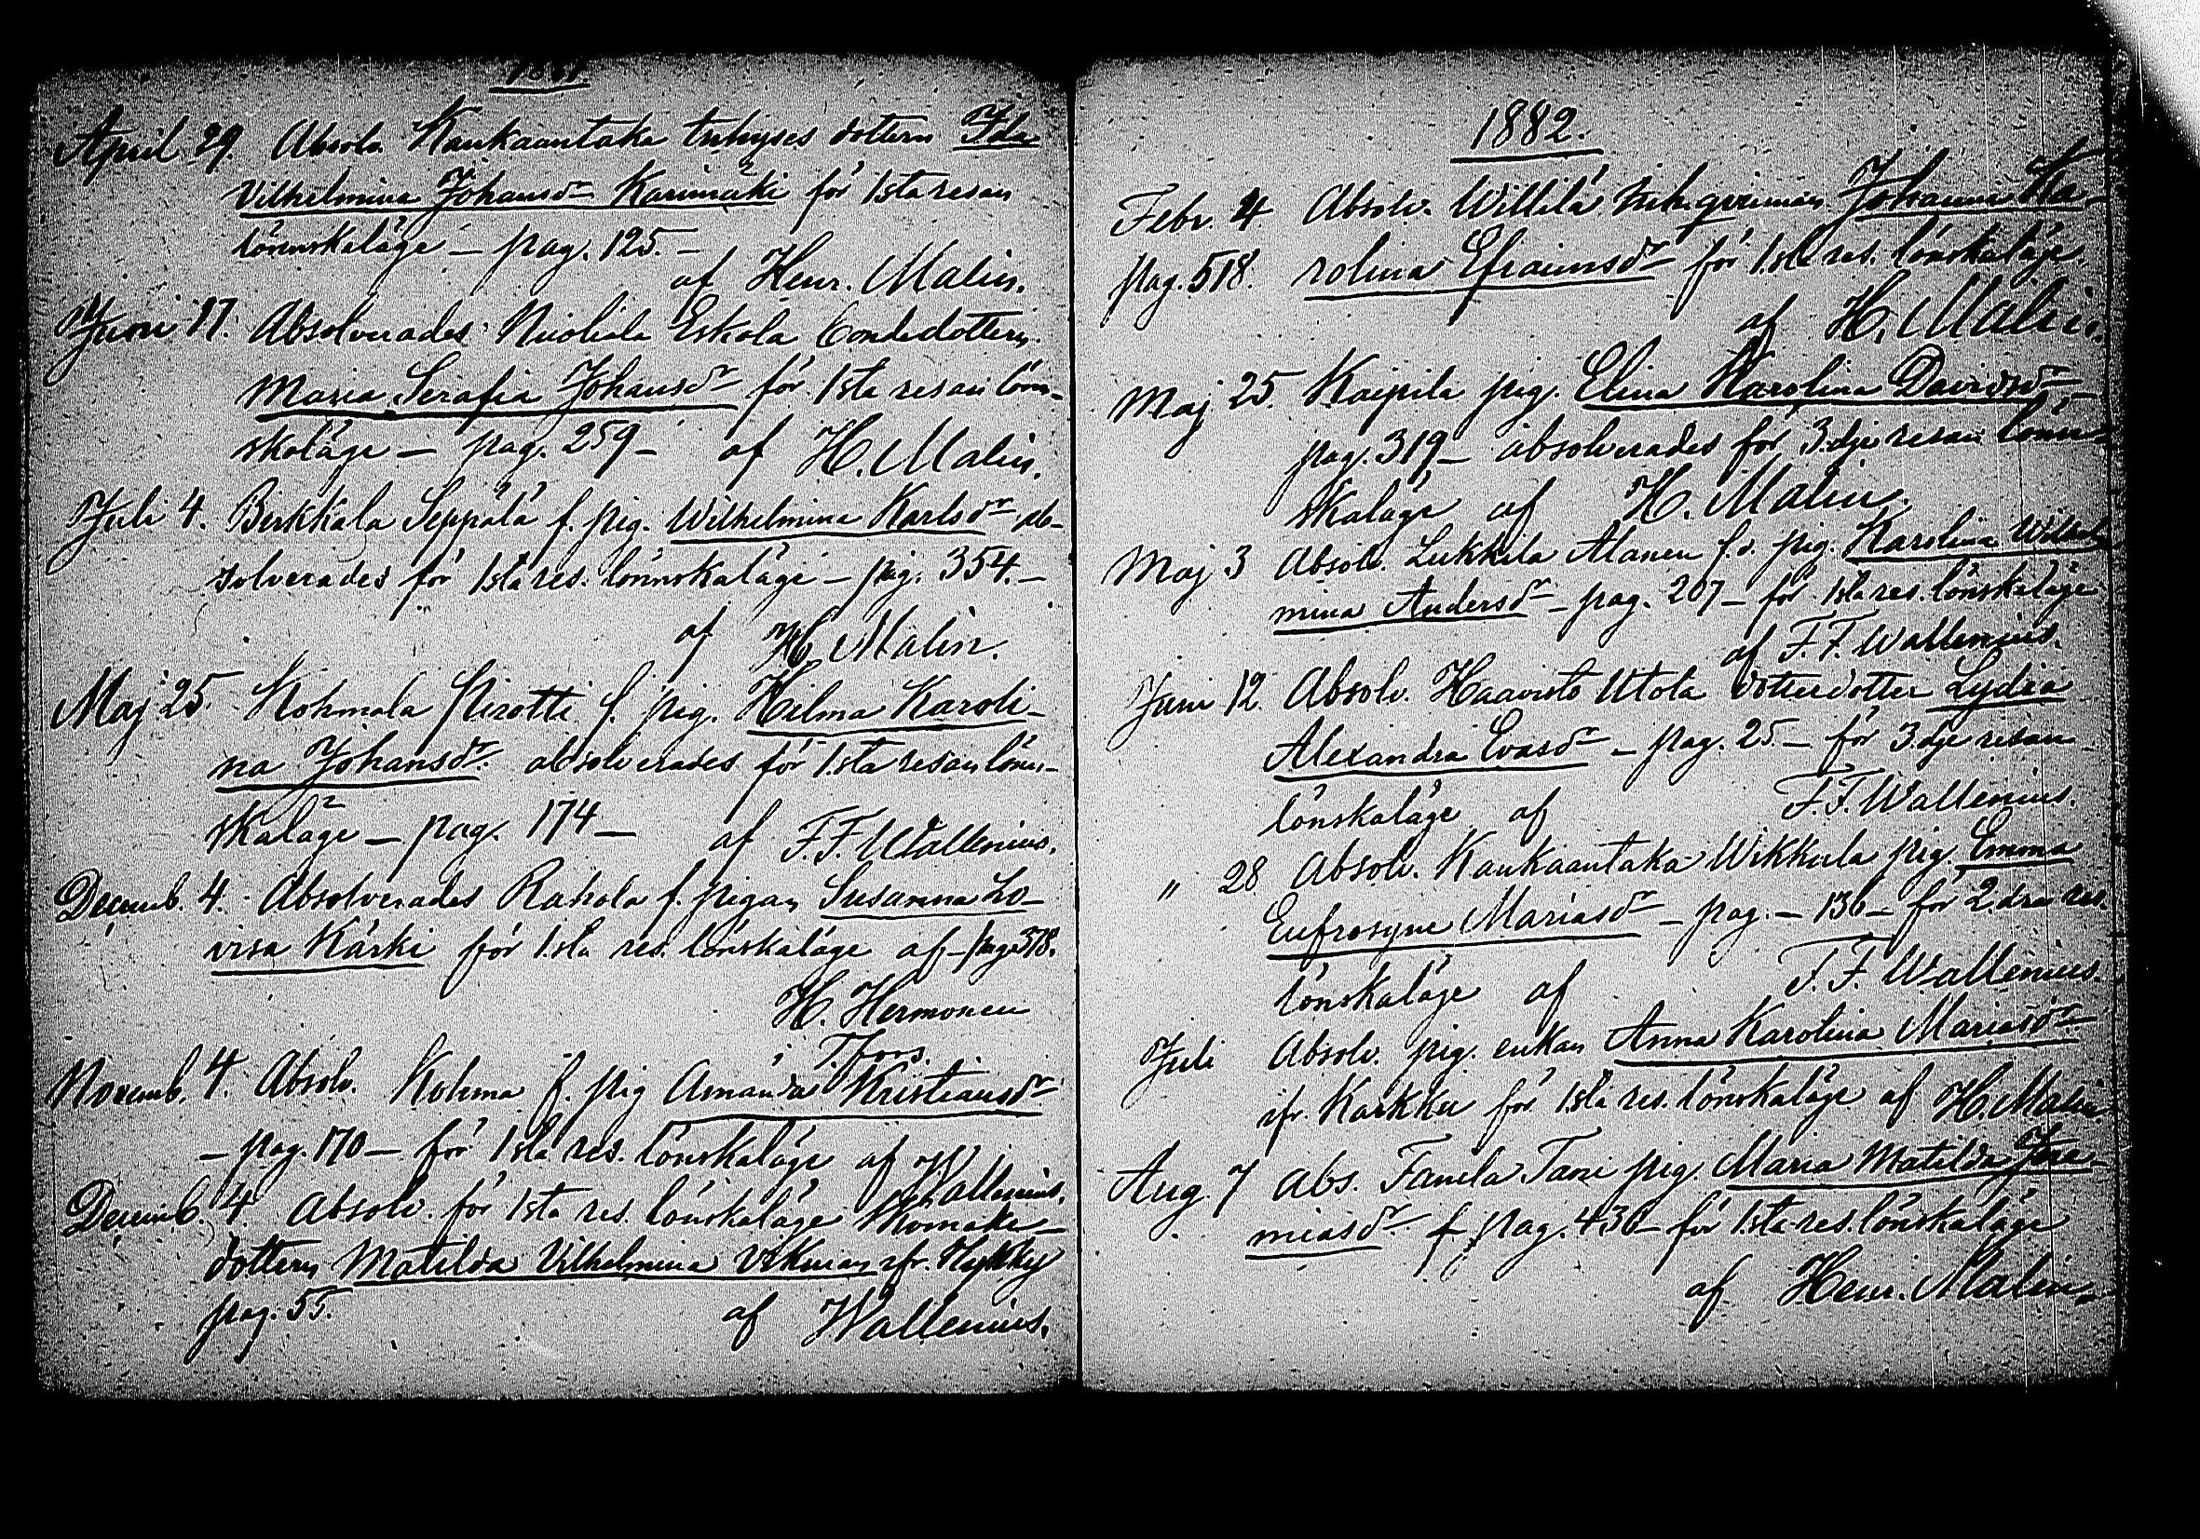 1881.
April 29. Absolv. Kaukaantaka inhyses dottern Ida
Vilhelmina Johansdr Karimäki för 1sta resan
lönnskaläge – pag. 125. –
af Henr. Malin.
Juni 17. Absolverades Nuoliala Eskola bondedottern
Maria Serafia Johansdr för 1sta resan löns-
kaläge – pag. 259 – af H. Malin.
Juli 4. Birkkala Seppälä f. pig. Wilhelmina Karlsdr ab-
solverades för 1sta res. lönnskaläge – pag. 354. –
af H. Malin.
Maj 25 Kohmala Pirotti f. pig. Hilma Karoli-
na Johansdr absolverades för 1sta resan löns-
kaläge – pag. 174 – af F. F. Wallenius.
Decemb. 4. Absolverades Rahola f. pigan Susanna Lo-
visa Kärki för 1.sta res. lönskaläge af – pag. 378.
H. Hermonen
Novemb. 4. Absolv. Kohma f. pig Amanda Kristiansdr
– pag. 170 – för 1sta res. lönskaläge af Wallenius.
Decemb. 4. Absolv. för 1sta res. lönskaläge
dottern Matilda Vilhelmina
pag. 55. af Wallenius.
1882.
Febr. 4 Absolv. Willilä inh. qvinnan Johanna Ka-
pag. 518. rolina Efraimsdr för 1.sta res. lönskaläge
af H. Malin.
Maj 25. Kaipila pig. Elina Karolina Davidsdr
pag. 319 – absolverades för 3.dje resan löns-
kaläge af H. Malin.
Maj 3 Absolv. Lukkila Alanen f.d. pig. Karolina Wilhel-
mina Andersdr – pag. 207 – för 1sta res. lönskaläge
af F. F. Wallenius.
Juni 12. Absolv. Haavisto Utola dotterdotter Lydia
Alexandra Evasdr – pag. 25. – för 3.dje resan
lönskaläge af F. F. Wallenius.
" 28 Absolv. Kaukaantaka Wikkula pig. Emma
Eufrosyne Mariasdr – pag. – 136 – för 2.dra res.
lönskaläge af F. F. Wallenius.
Juli Absolv. pig. enkan Anna Karolina Mariasdr
ifr. Karkku för 1.sta res. lönskaläge af H. Malin
Aug. 7 Abs. Tanila Tani pig. Maria Matilda Jere-
miasdr f pag. 436 – för 1.sta res. lönskaläge
af Henr. Malin.